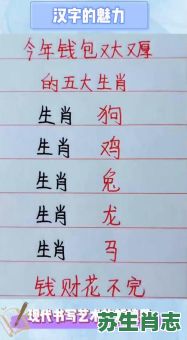 汉字的魅力
今年钱包又大又厚
的五大生肖
生肖 狗
生肖 鸡
生肖 兔
生肖 龙
生肖 马
钱财花不完
现代书写艺术
苏生肖志